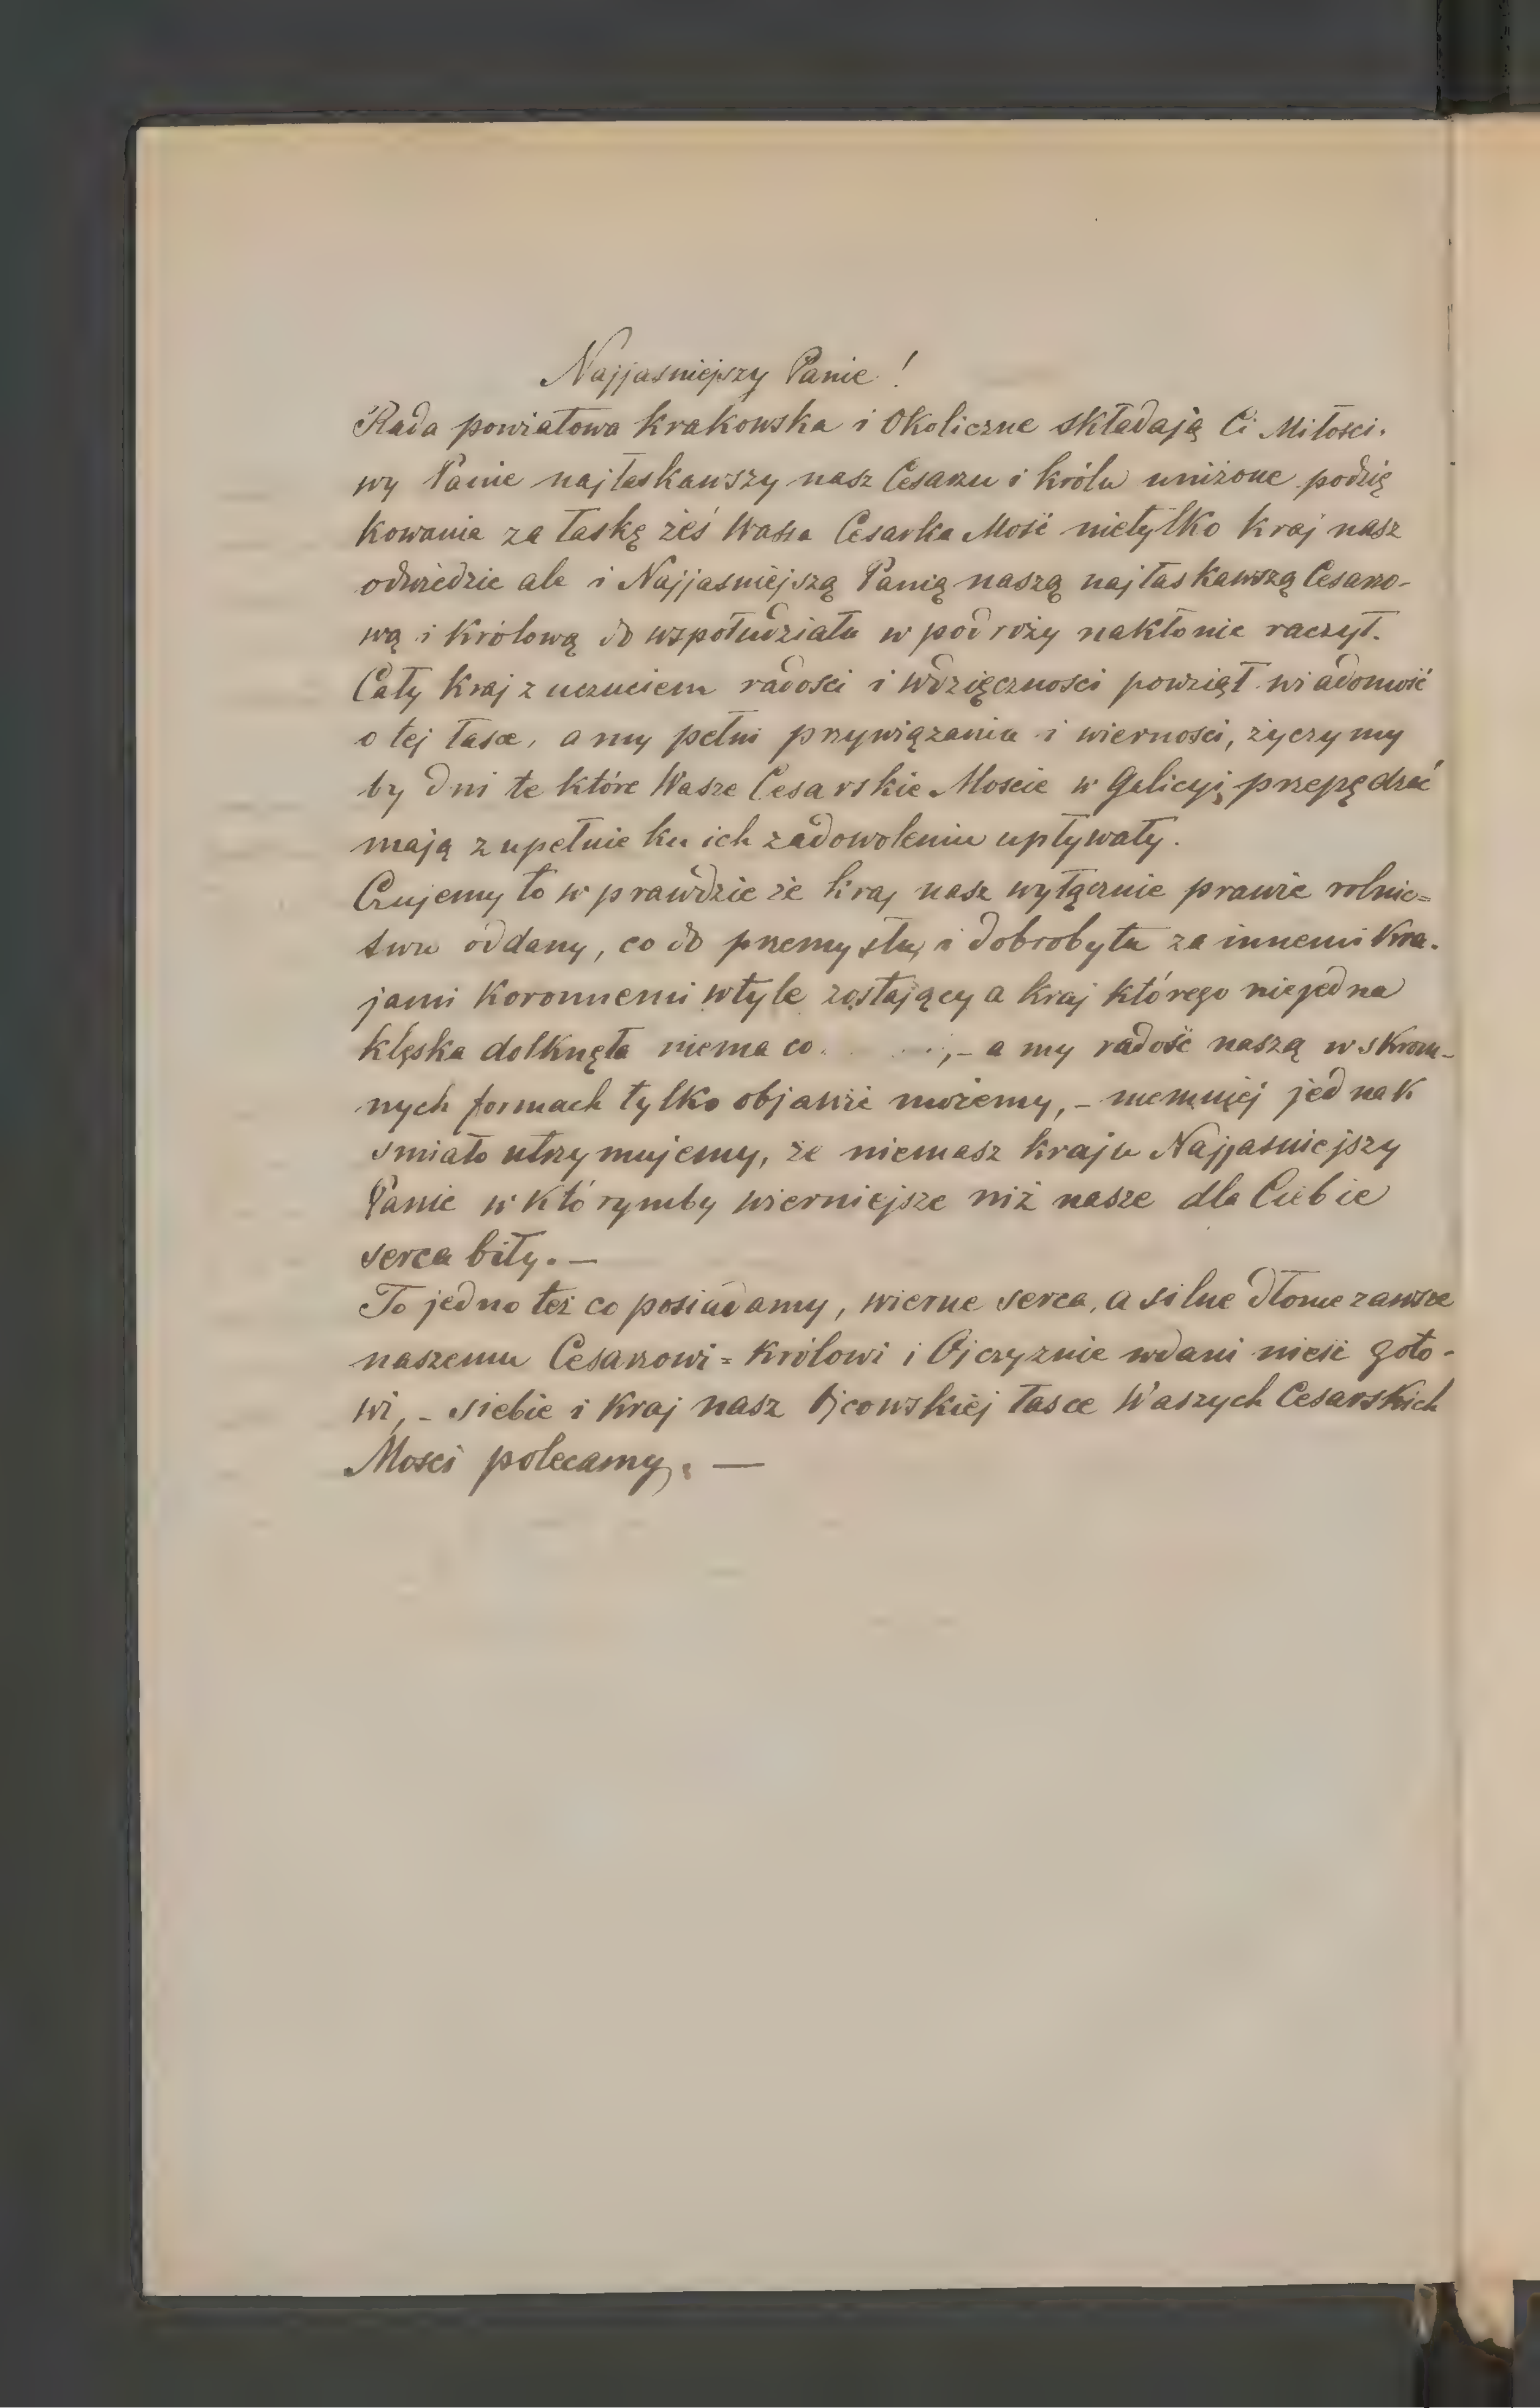 Najjasniejszy Panie!
Rada powiatowa krakowska i Okoliczne składają Ci Miłości-
wy Panie najłaskawszy nasz Cesarzu i królu uniżone podzię
kowania za łaskę żeś Wasza Cesarka Mość nietylko kraj nasz
odwiedzić ale i Najjaśniejszą Panią naszą najłaskawszą Cesarzo-
wą i Królową do współudziału w podróży nakłonić raczył.
Cały Kraj z uczuciem radości i wdzięczności powziął wiadomość
o tej łasce, a my pełni przywiązania i wierności, życzymy
by dni te które Wasze Cesarskie Moscie w Galicyi przepędzać
mają zupełnie ku ich zadowoleniu upływały.
Czujemy to w prawdzie że kraj nasz wyłącznie prawie rolnic=
twu oddany, co do przemysłu i dobrobytu za innemi kra-
jami Koronnemi wtyle zostający a kraj którego niejedna
klęska dotknęła niema co . . . . ,- a my radość naszą w skrom-
nych formach tylko objawić możemy, - niemniej jednak
smiało utrzymujemy, że niemasz kraju Najjasniejszy
Panie w którymby wierniejsze niż nasze dla Ciebie
serca biły. —
To jedno też co posiadamy, wierne serca, a silne dłonie zawsze
naszemu Cesarzowi = Królowi i Ojczyznie w dani nieść goto-
wi, - siebie i Kraj nasz Ojcowskiej łasce Waszych Cesarskich
Mosci polecamy. —